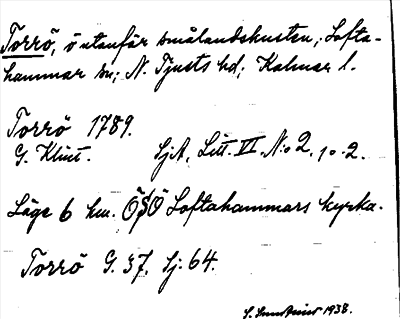 Torrö, ö utanför smålandskusten; Lofta-
hammar sn; N. Tjusts hd; Kalmar l.
Torrö 1789.
G. Klint. SjA, Litt. VI. N:o 2. 1 o. 2.
Läge 6 km. ÖSÖ Loftahammars kyrka.
Torrö G. 37. Sj: 64.
S. 1938.